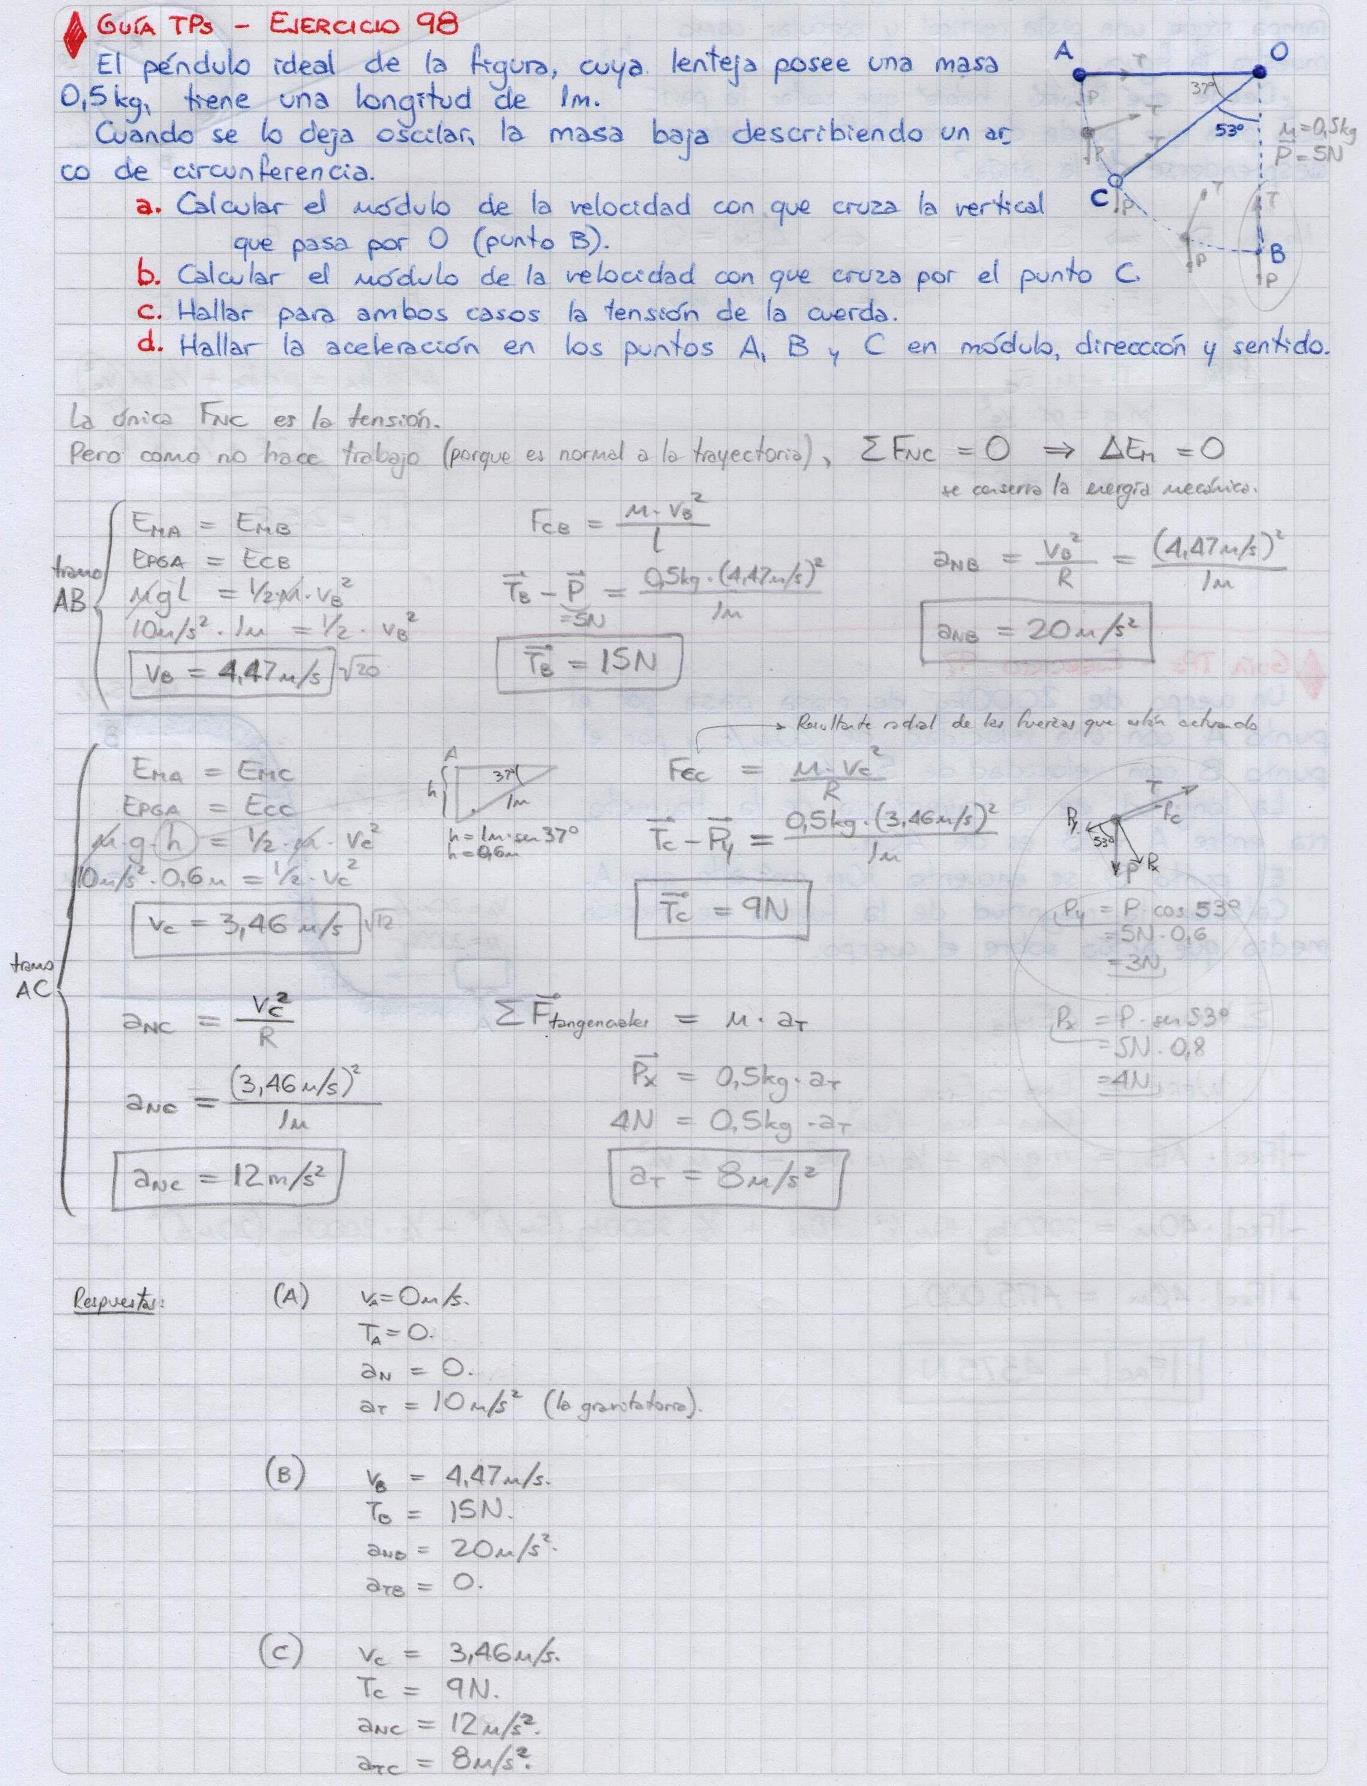 GUÍA TPs - EJERCICIO 98
El péndulo ideal de la figura, cuya lenteja posee una masa
0,5kg, tiene una longitud de 1m.
Cuando se lo deja oscilar, la masa baja describiendo un ar
co de circunferencia.
a. Calcular el módulo de la velocidad con que cruza la vertical
que pasa por O (punto B).
b. Calcular el módulo de la velocidad con que cruza por el punto C.
c. Hallar para ambos casos la tensión de la cuerda.
d. Hallar la aceleración en los puntos A, B y C en módulo, dirección y sentido.
A O
37°
53°
m=0,5kg
P=5N
C
B
T
P
T
P
T
P
T
P
T
P
La única FNC es la tensión.
Pero como no hace trabajo (porque es normal a la trayectoria), ΣFNC = 0 ⇒ ΔEM = 0
se conserva la energía mecánica.
tramo AB
EMA = EMB
EPGA = ECB
mgl = 1/2·m·vB²
10m/s²·1m = 1/2·vB²
vB = 4,47m/s √20
FCB = m·vB²/l
TB - P = 0,5kg·(4,47m/s)²/1m
=5N
TB = 15N
aNB = vB²/R = (4,47m/s)²/1m
aNB = 20m/s²
tramo AC
EMA = EMC
EPGA = ECC
m·g·h = 1/2·m·vC²
10m/s²·0,6m = 1/2·vC²
vC = 3,46m/s √12
A
37°
h
1m
h=1m·sen37°
h=0,6m
Resultante radial de las fuerzas que están actuando
FCC = m·vC²/R
TC - Py = 0,5kg·(3,46m/s)²/1m
TC = 9N
T
Fc
Py
53°
P
Px
Py = P cos 53°
= 5N·0,6
= 3N
Px = P·sen53°
= 5N·0,8
= 4N
aNC = vC²/R
aNC = (3,46m/s)²/1m
aNC = 12m/s²
ΣFtangenciales = m·aT
Px = 0,5kg·aT
4N = 0,5kg·aT
aT = 8m/s²
Respuestas:
(A) vA=0m/s.
TA=0.
aN = 0.
aT = 10m/s² (la gravitatoria).
(B) vB = 4,47m/s.
TB = 15N.
aNB = 20m/s².
aTB = 0.
(C) vC = 3,46m/s.
TC = 9N.
aNC = 12m/s².
aTC = 8m/s².